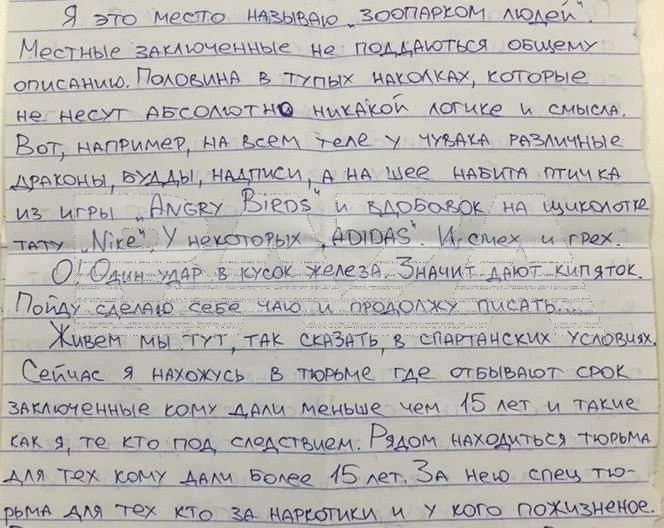 Я это место называю „зоопарком людей".
Местные заключенные не поддаються общему
описанию. Половина в тупых наколках, которые
не несут абсолютно никакой логике и смысла.
Вот, например, на всем теле у чувака различные
драконы, будды, надписи, а на шее набита птичка
из игры „Angry Birds" и вдобовок на щиколотке
тату „Nike". У некоторых „ADIDAS". И смех и грех.
О! Один удар в кусок железа. Значит дают кипяток.
Пойду сделаю себе чаю и продолжу писать....
Живем мы тут, так сказать, в спартанских условиях.
Сейчас я нахожусь в тюрьме где отбывают срок
заключенные кому дали меньше чем 15 лет и такие
как я, те кто под следствием. Рядом находиться тюрьма
для тех кому дали более 15 лет. За нею спец тю-
рьма для тех кто за наркотики и у кого пожизненое.